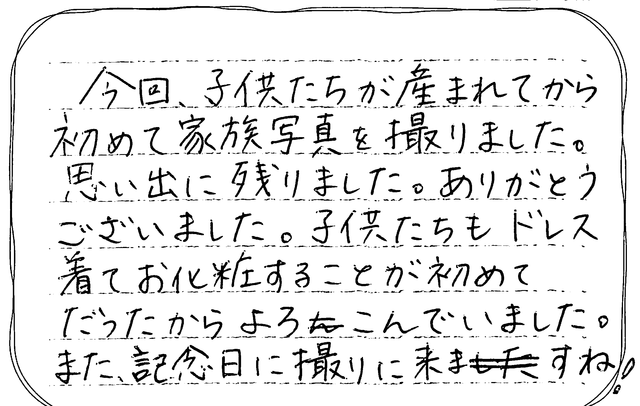 今回、子供たちが産まれてから
初めて家族写真を撮りました。
思い出に残りました。ありがとう
ございました。子供たちも ドレス
着てお化粧することが初めて
だったから よろこんでいました。
また、記念日に撮りに来ますね!